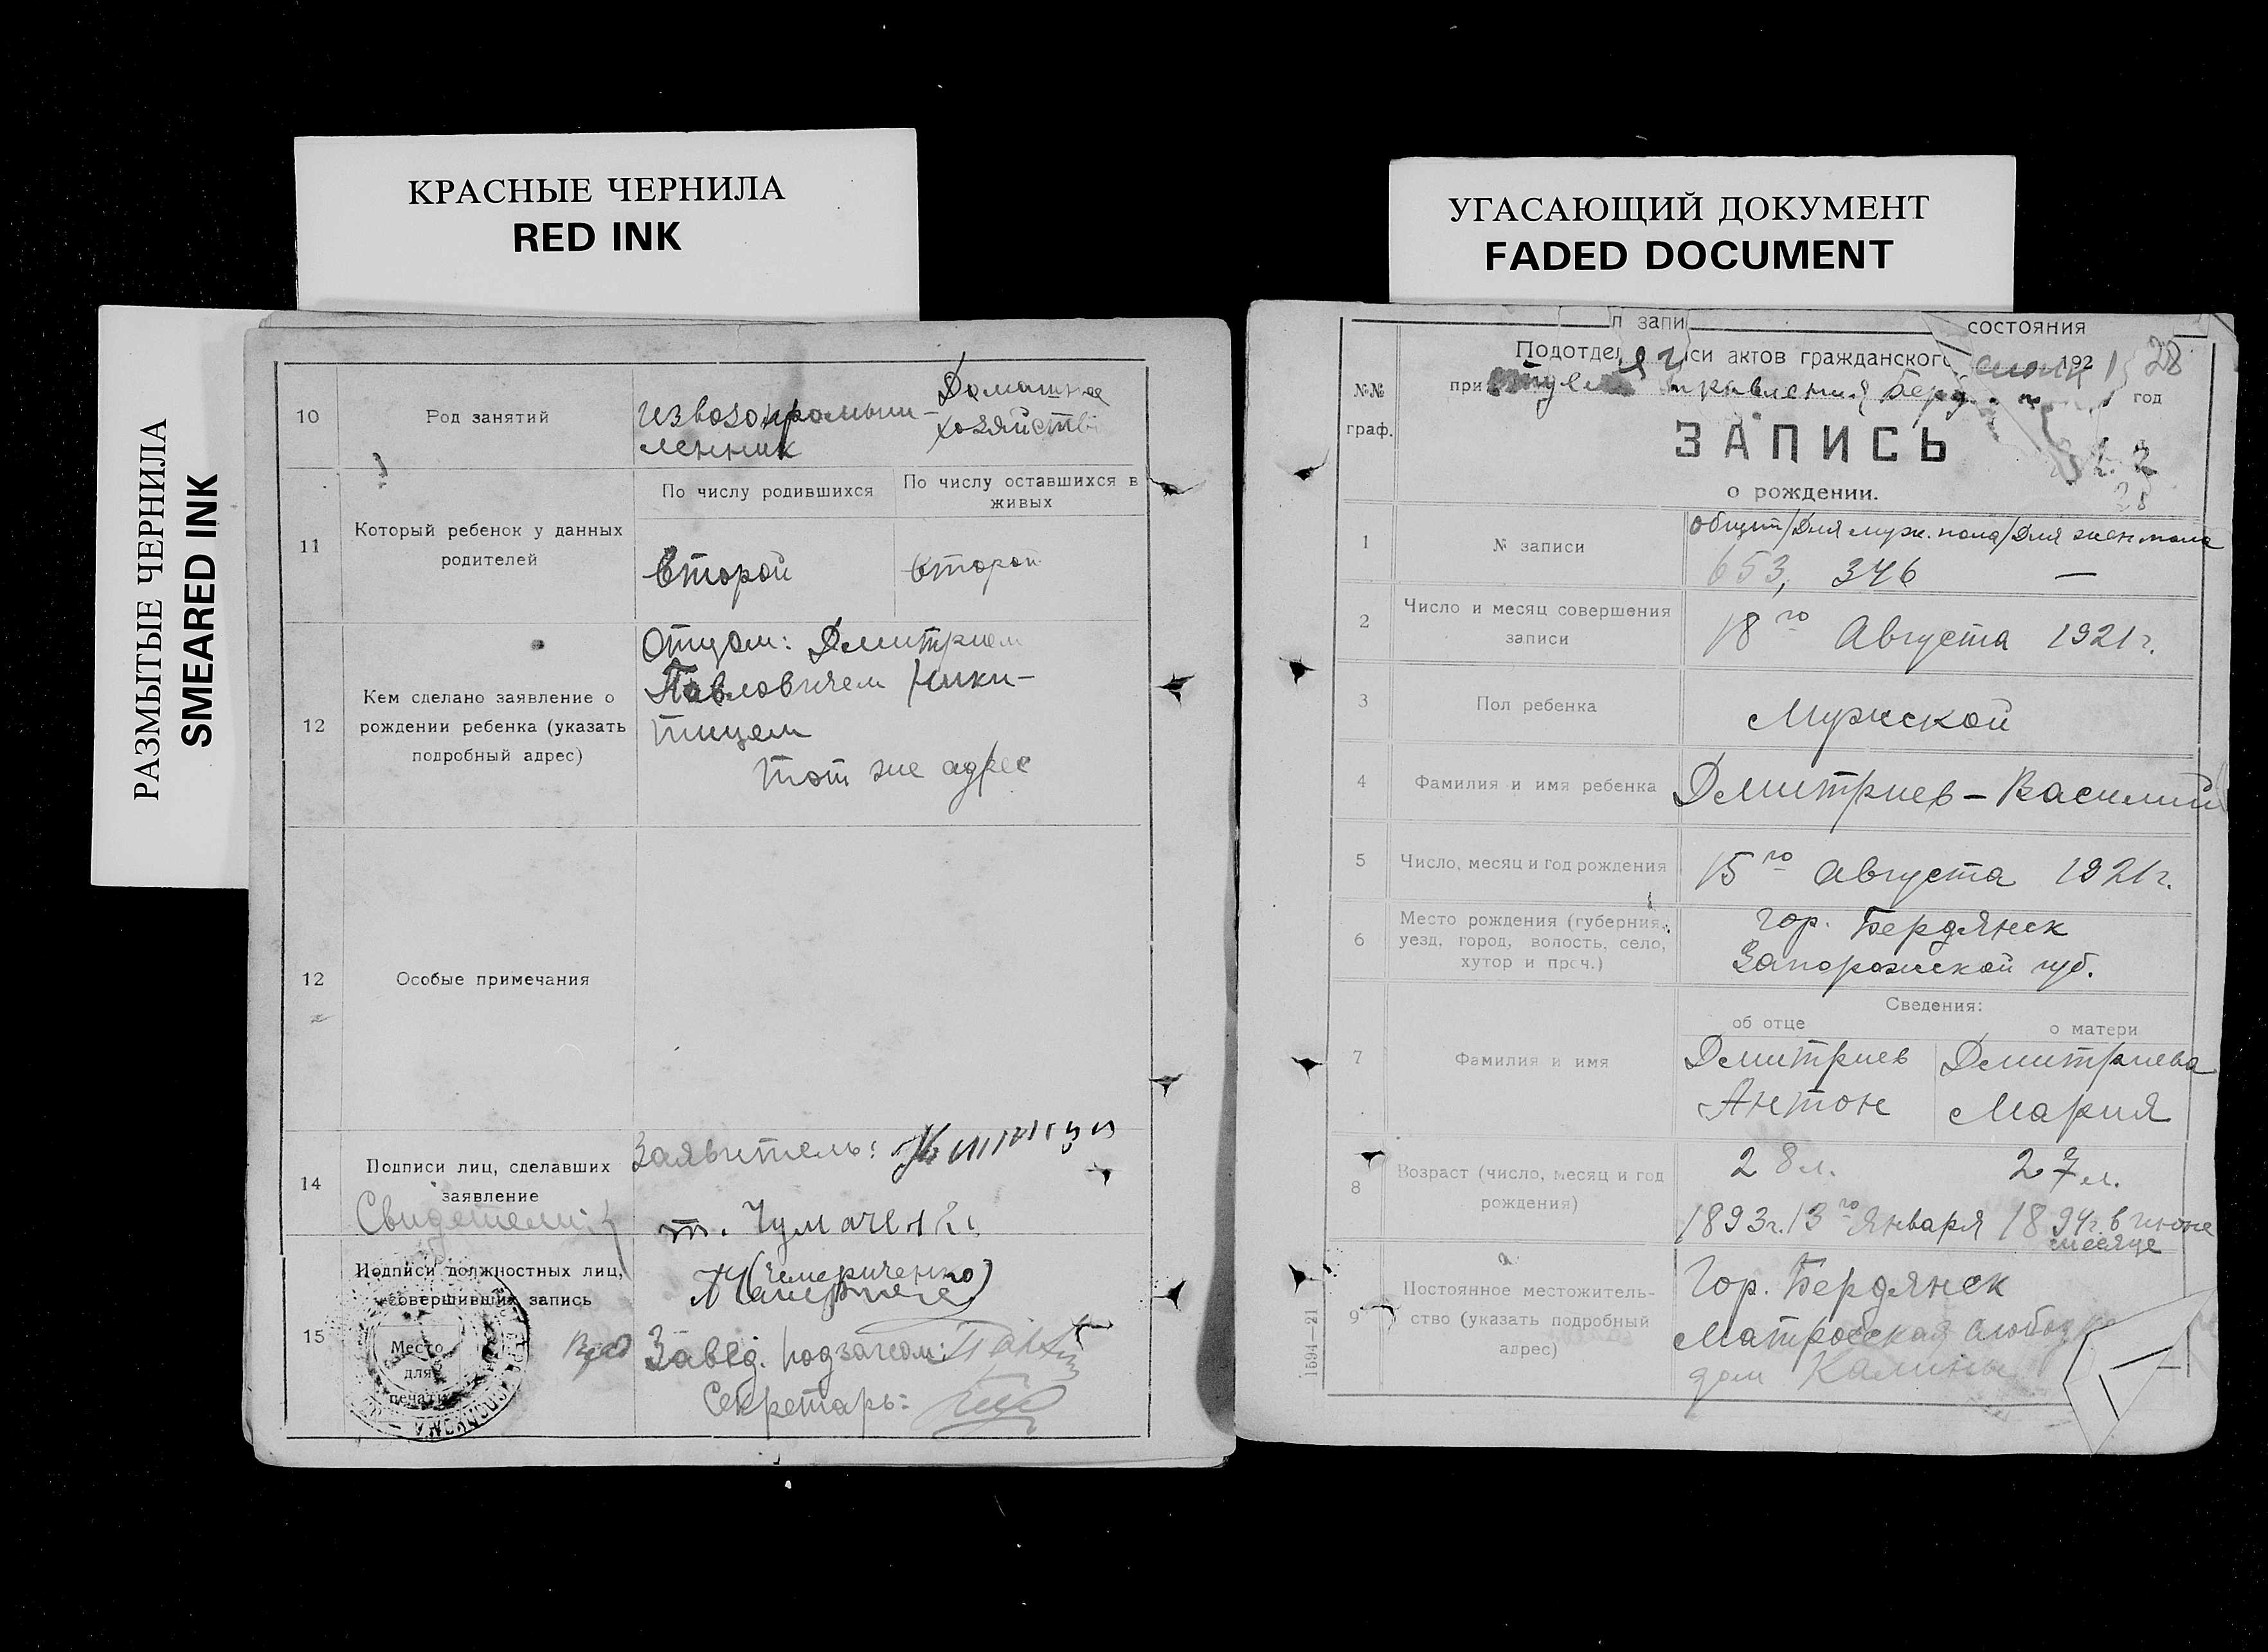 КРАСНЫЕ ЧЕРНИЛА
RED INK
РАЗМЫТЫЕ ЧЕРНИЛА
SMEARED INK
10
Род занятий
Извозопромыш-
ленник
Домашнее
хозяйство
11
Который ребенок у данных
родителей
По числу родившихся
По числу оставшихся в
живых
Второй
Второй
12
Кем сделано заявление о
рождении ребенка (указать
подробный адрес)
Отцом: Дмитрием
Павловичем Ники-
тот же адрес
12
Особые примечания
14
Подписи лиц, сделавших
заявление
Свидетели:
Заявитель:
т.
15
Подписи должностных лиц,
совершивших запись
Место
для
печати
(Чемериченко)
Завед. подзагсом:
Секретарь:
УГАСАЮЩИЙ ДОКУМЕНТ
FADED DOCUMENT
п запи
состояния
Подотдел си актов гражданского 192 1
28
при
год
№№
граф.
ЗАПИСЬ
о рождении.
1
№ записи
общий/Для муж. пола/Для жен. пола
653, 346 —
2
Число и месяц совершения
записи
18го Августа 1921 г.
3
Пол ребенка
Мужской
4
Фамилия и имя ребенка
Дмитриев - Василий
5
Число, месяц и год рождения
15го Августа 1921 г.
6
Место рождения (губерния,
уезд, город, волость, село,
хутор и проч.)
гор. Бердянск
Запорожской губ.
Сведения:
об отце
о матери
7
Фамилия и имя
Дмитриев
Антон
Дмитриева
Мария
8
Возраст (число, месяц и год
рождения)
28 л.
27 л.
1893 г. 13го Января
1894 г. в июне
месяце
9
Постоянное местожитель-
ство (указать подробный
адрес)
Гор. Бердянск
Матросская слободка
дом Калины
1594—21